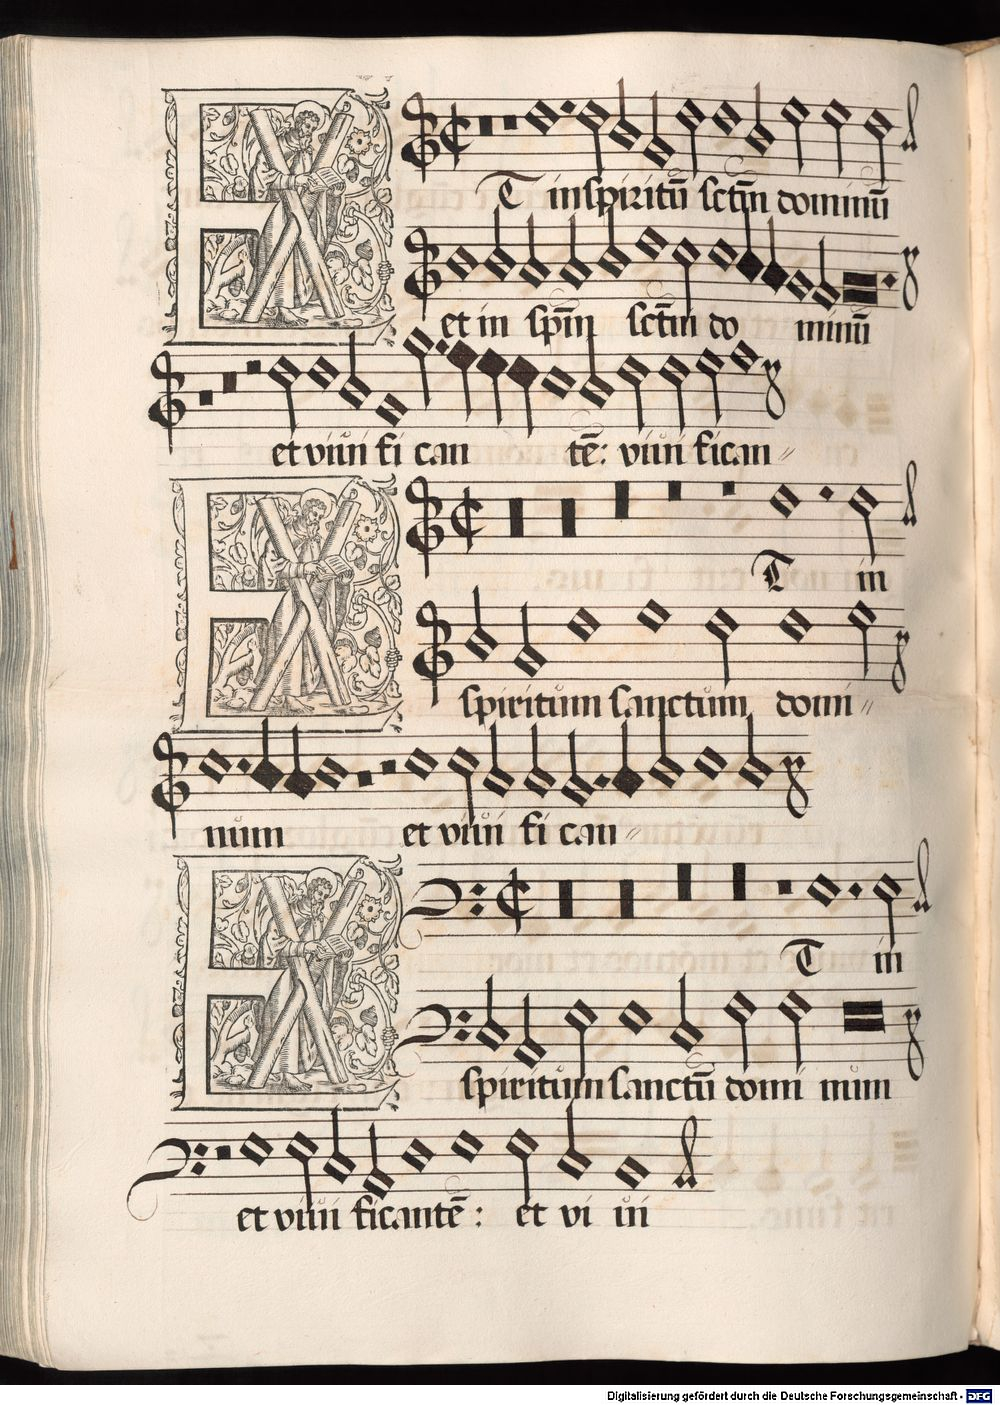 ET in spiritū sctm̄ dominū
et in spm̄ sctm̄ do minū
et viui fi can tē: viui fican〃
ET in
spiritum sanctum domi〃
num et viui fi can〃
ET in
spiritum sanctū domi num
et viui ficantē: et vi ui
Digitalisierung gefördert durch die Deutsche Forschungsgemeinschaft - DFG